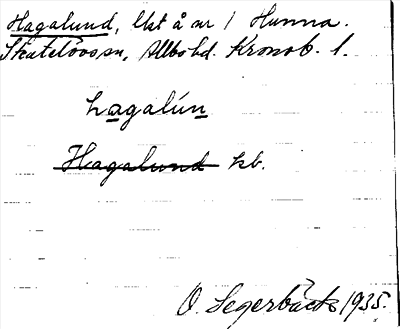 Hagalund, lht å ar 1 Hunna.
Skatelövs sn, Allbo hd. Kronob. l.
hagalún
Hagalund kb.
O. Segerbäck 1935.